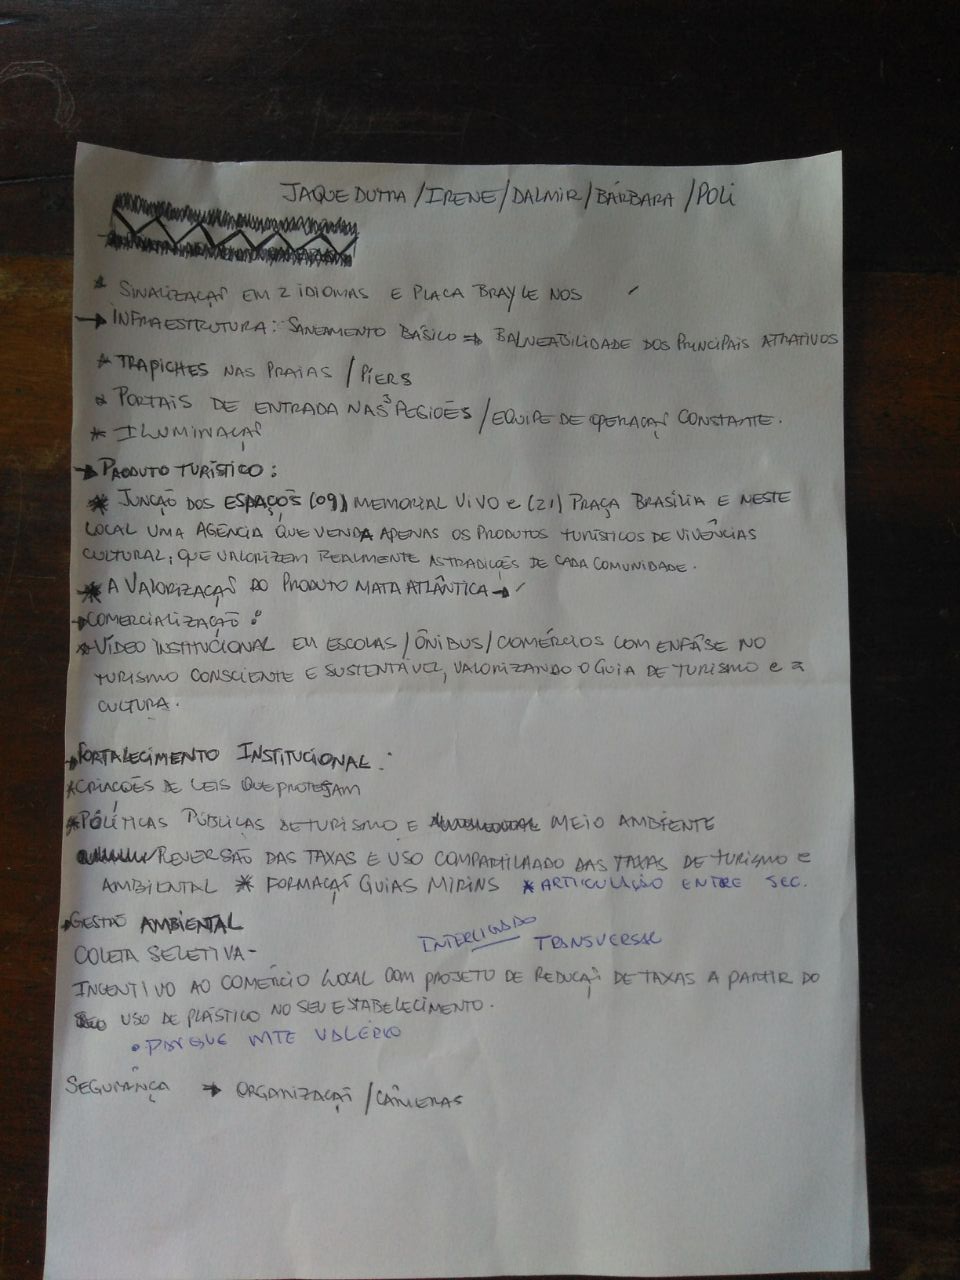 JAQUE DUTRA / IRENE / DALMIR / BÁRBARA / POLI
* SINALIZAÇÃO EM 2 IDIOMAS E PLACA BRAYLE NOS
→ INFRAESTRUTURA: SANEAMENTO BÁSICO ⇒ BALNEABILIDADE DOS PRINCIPAIS ATRATIVOS
* TRAPICHES NAS PRAIAS / PÍERS
* PORTAIS DE ENTRADA NAS 3 REGIÕES / EQUIPE DE OPERAÇÃO CONSTANTE.
* ILUMINAÇÃO
→ PRODUTO TURÍSTICO:
* JUNÇÃO DOS ESPAÇOS (09) MEMORIAL VIVO e (21) PRAÇA BRASÍLIA E NESTE
LOCAL UMA AGÊNCIA QUE VENDA APENAS OS PRODUTOS TURÍSTICOS DE VIVÊNCIAS
CULTURAL, QUE VALORIZEM REALMENTE AS TRADIÇÕES DE CADA COMUNIDADE.
* A VALORIZAÇÃO DO PRODUTO MATA ATLÂNTICA →
→ COMERCIALIZAÇÃO:
* VÍDEO INSTITUCIONAL EM ESCOLAS / ÔNIBUS / COMÉRCIOS COM ENFÂSE NO
TURISMO CONSCIENTE E SUSTENTÁVEL, VALORIZANDO O GUIA DE TURISMO e a
CULTURA.
→ FORTALECIMENTO INSTITUCIONAL:
* CRIAÇÕES DE LEIS QUE PROTEJAM
* POLÍTICAS PÚBLICAS DE TURISMO E MEIO AMBIENTE
REVERSÃO DAS TAXAS E USO COMPARTILHADO DAS TAXAS DE TURISMO e
AMBIENTAL * FORMAÇÃO GUIAS MIRINS * ARTICULAÇÃO ENTRE SEC.
→ GESTÃO AMBIENTAL
INTERLIGADO TRANSVERSAL
COLETA SELETIVA -
INCENTIVO AO COMÉRCIO LOCAL COM PROJETO DE REDUÇÃO DE TAXAS A PARTIR DO
USO DE PLÁSTICO NO SEU ESTABELECIMENTO.
• PARQUE MTE VALÉRIO
SEGURANÇA → ORGANIZAÇÃO / CÂMERAS